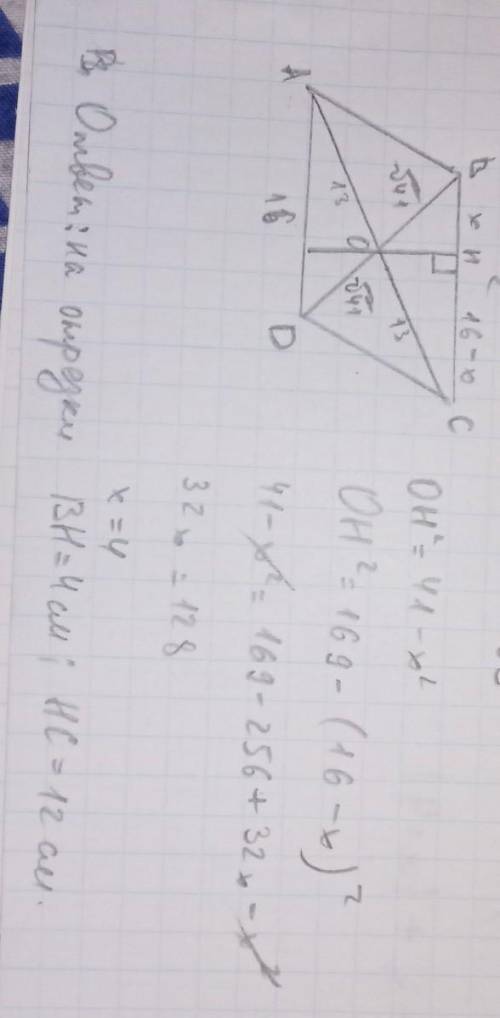 A B C D O H
x 16-x
√41 13
13 √41
16
OH² = 41 - x²
OH² = 169 - (16 - x)²
41 - x² = 169 - 256 + 32x - x²
32x = 128
x = 4
Ответ: на отрезки BH = 4 см; HC = 12 см.